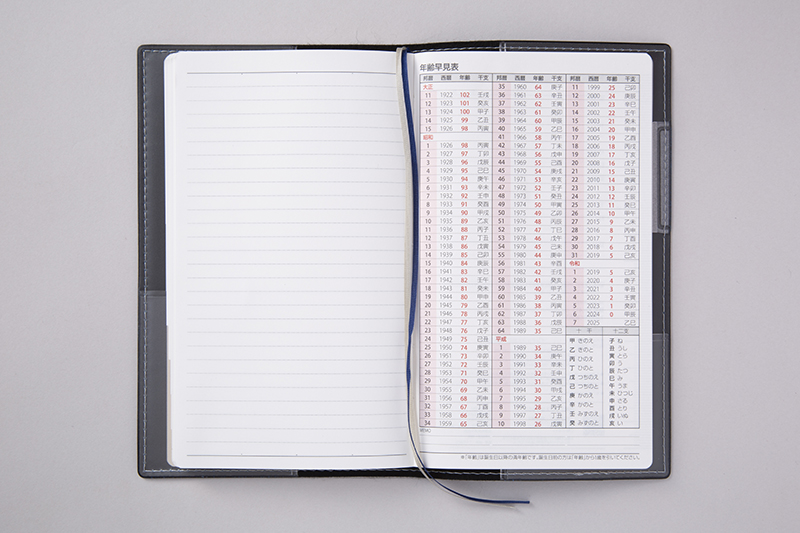 年齢早見表
邦暦 西暦 年齢 干支
大正
11 1922 102 壬戌
12 1923 101 癸亥
13 1924 100 甲子
14 1925 99 乙丑
15 1926 98 丙寅
昭和
1 1926 98 丙寅
2 1927 97 丁卯
3 1928 96 戊辰
4 1929 95 己巳
5 1930 94 庚午
6 1931 93 辛未
7 1932 92 壬申
8 1933 91 癸酉
9 1934 90 甲戌
10 1935 89 乙亥
11 1936 88 丙子
12 1937 87 丁丑
13 1938 86 戊寅
14 1939 85 己卯
15 1940 84 庚辰
16 1941 83 辛巳
17 1942 82 壬午
18 1943 81 癸未
19 1944 80 甲申
20 1945 79 乙酉
21 1946 78 丙戌
22 1947 77 丁亥
23 1948 76 戊子
24 1949 75 己丑
25 1950 74 庚寅
26 1951 73 辛卯
27 1952 72 壬辰
28 1953 71 癸巳
29 1954 70 甲午
30 1955 69 乙未
31 1956 68 丙申
32 1957 67 丁酉
33 1958 66 戊戌
34 1959 65 己亥
邦暦 西暦 年齢 干支
35 1960 64 庚子
36 1961 63 辛丑
37 1962 62 壬寅
38 1963 61 癸卯
39 1964 60 甲辰
40 1965 59 乙巳
41 1966 58 丙午
42 1967 57 丁未
43 1968 56 戊申
44 1969 55 己酉
45 1970 54 庚戌
46 1971 53 辛亥
47 1972 52 壬子
48 1973 51 癸丑
49 1974 50 甲寅
50 1975 49 乙卯
51 1976 48 丙辰
52 1977 47 丁巳
53 1978 46 戊午
54 1979 45 己未
55 1980 44 庚申
56 1981 43 辛酉
57 1982 42 壬戌
58 1983 41 癸亥
59 1984 40 甲子
60 1985 39 乙丑
61 1986 38 丙寅
62 1987 37 丁卯
63 1988 36 戊辰
64 1989 35 己巳
平成
1 1989 35 己巳
2 1990 34 庚午
3 1991 33 辛未
4 1992 32 壬申
5 1993 31 癸酉
6 1994 30 甲戌
7 1995 29 乙亥
8 1996 28 丙子
9 1997 27 丁丑
10 1998 26 戊寅
邦暦 西暦 年齢 干支
11 1999 25 己卯
12 2000 24 庚辰
13 2001 23 辛巳
14 2002 22 壬午
15 2003 21 癸未
16 2004 20 甲申
17 2005 19 乙酉
18 2006 18 丙戌
19 2007 17 丁亥
20 2008 16 戊子
21 2009 15 己丑
22 2010 14 庚寅
23 2011 13 辛卯
24 2012 12 壬辰
25 2013 11 癸巳
26 2014 10 甲午
27 2015 9 乙未
28 2016 8 丙申
29 2017 7 丁酉
30 2018 6 戊戌
31 2019 5 己亥
令和
1 2019 5 己亥
2 2020 4 庚子
3 2021 3 辛丑
4 2022 2 壬寅
5 2023 1 癸卯
6 2024 0 甲辰
7 2025 乙巳
十干
甲 きのえ
乙 きのと
丙 ひのえ
丁 ひのと
戊 つちのえ
己 つちのと
庚 かのえ
辛 かのと
壬 みずのえ
癸 みずのと
十二支
子 ね
丑 うし
寅 とら
卯 う
辰 たつ
巳 み
午 うま
未 ひつじ
申 さる
酉 とり
戌 いぬ
亥 い
MEMO
※「年齢」は誕生日以降の満年齢です。誕生日前の方は「年齢」から1歳を引いてください。